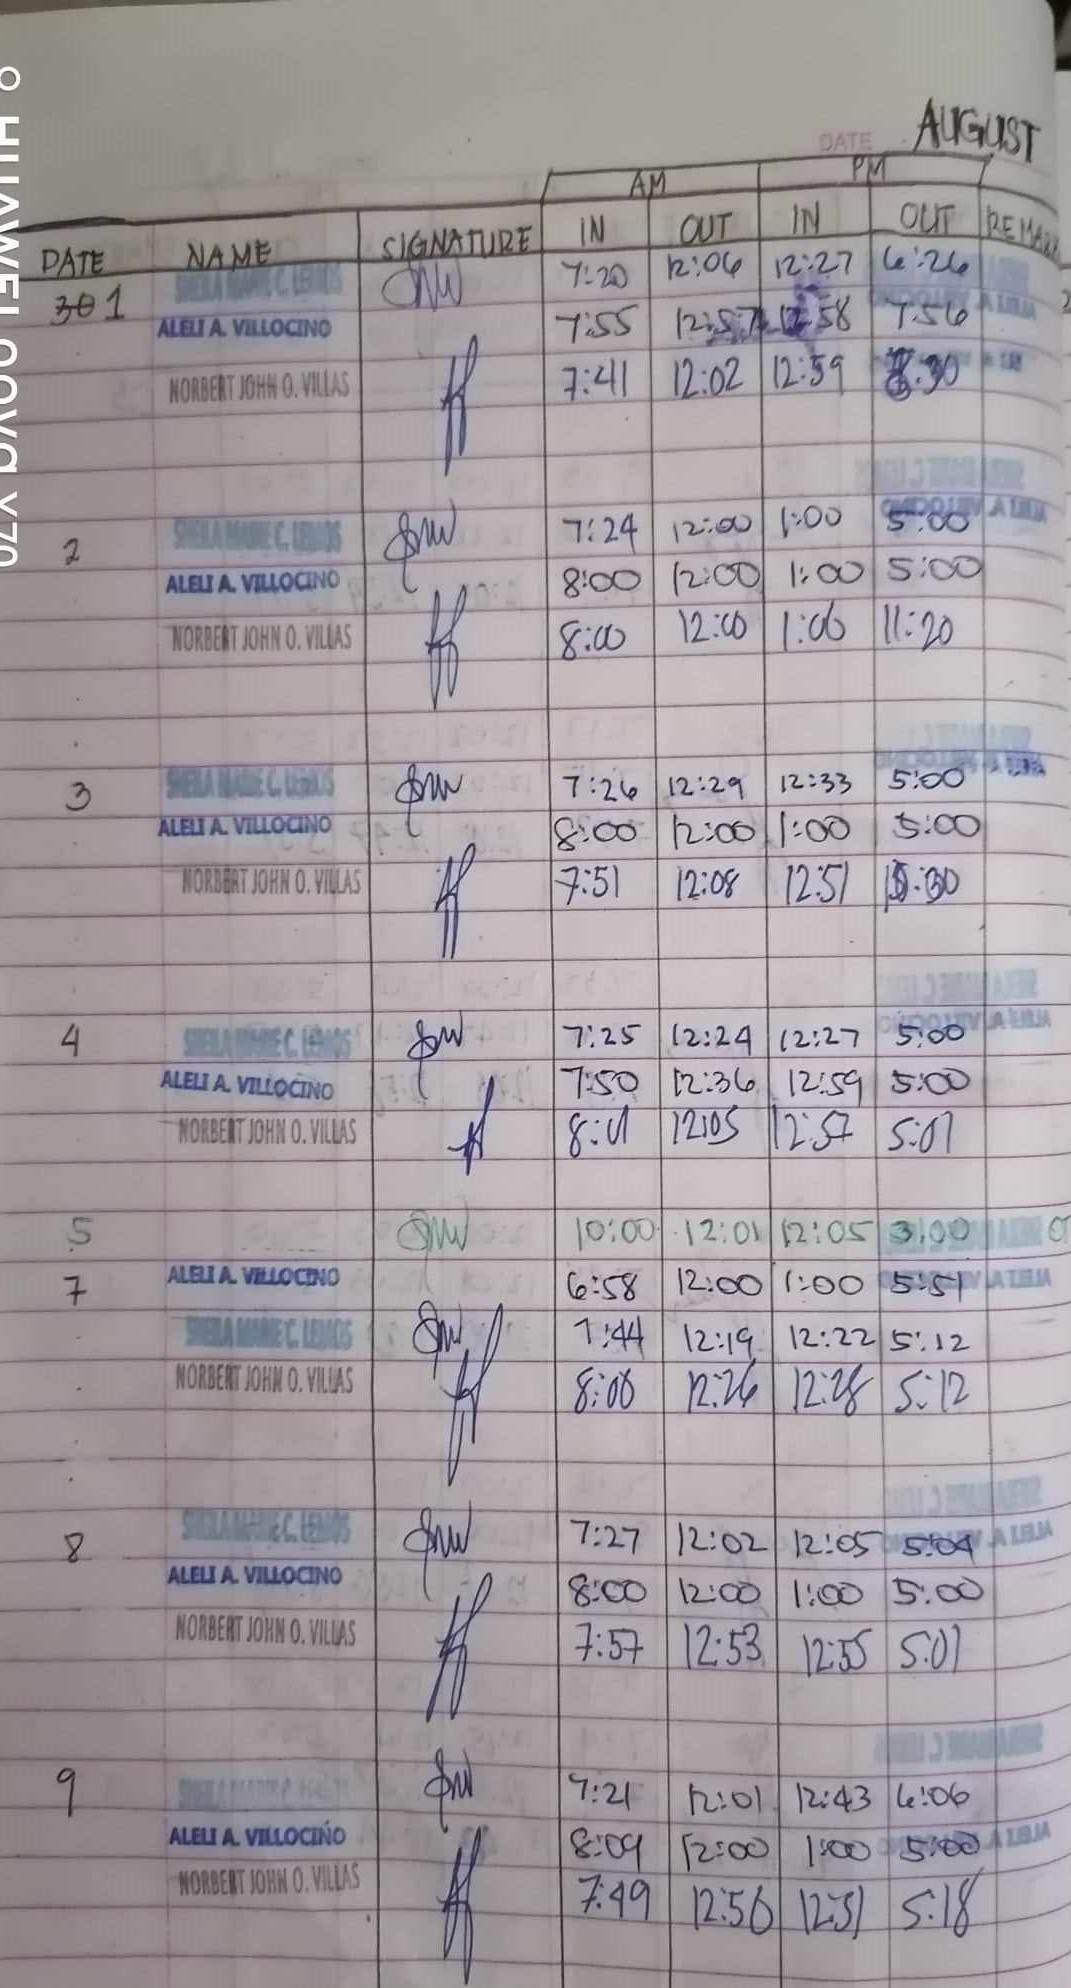 HUAWEI nova Y70
DATE AUGUST
AM PM
DATE NAME SIGNATURE IN OUT IN OUT REMARK
1 SHEILA MARIE C. LEMOS 7:20 12:06 12:27 6:26
ALELI A. VILLOCINO 7:55 12:57 12:58 7:56
NORBERT JOHN O. VILLAS 7:41 12:02 12:59
2 SHEILA MARIE C. LEMOS 7:24 12:00 1:00 5:00
ALELI A. VILLOCINO 8:00 12:00 1:00 5:00
NORBERT JOHN O. VILLAS 8:00 12:00 1:06 11:20
3 SHEILA MARIE C. LEMOS 7:26 12:29 12:33 5:00
ALELI A. VILLOCINO 8:00 12:00 1:00 5:00
NORBERT JOHN O. VILLAS 7:51 12:08 12:51
4 SHEILA MARIE C. LEMOS 7:25 12:24 12:27 5:00
ALELI A. VILLOCINO 7:50 12:36 12:59 5:00
NORBERT JOHN O. VILLAS 8:01 12:05 12:57 5:07
5 10:00 12:01 12:05 3:00
7 ALELI A. VILLOCINO 6:58 12:00 1:00 5:51
SHEILA MARIE C. LEMOS 7:44 12:19 12:22 5:12
NORBERT JOHN O. VILLAS 8:00 12:26 12:28 5:12
8 SHEILA MARIE C. LEMOS 7:27 12:02 12:05 5:04
ALELI A. VILLOCINO 8:00 12:00 1:00 5:00
NORBERT JOHN O. VILLAS 7:57 12:53 12:55 5:01
9 7:21 12:01 12:43 6:06
ALELI A. VILLOCINO 8:09 12:00 1:00 5:00
NORBERT JOHN O. VILLAS 7:49 12:50 12:51 5:18